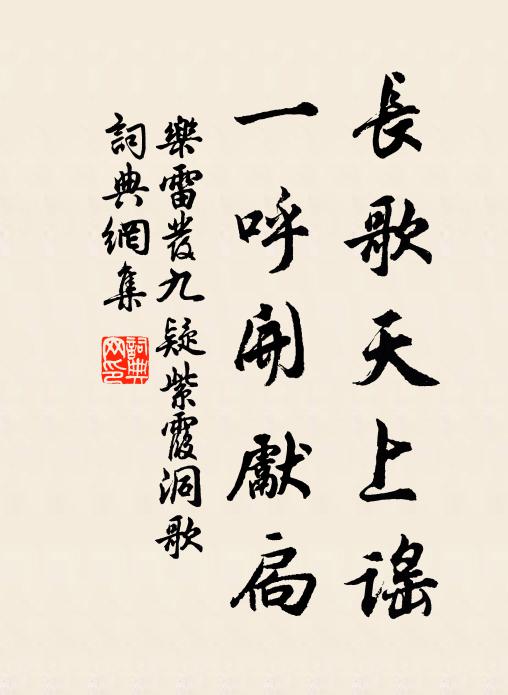 長歌天上謠
一呼開獻扃
樂雷發九疑紫霞洞歌
詞典網集
詞典網印